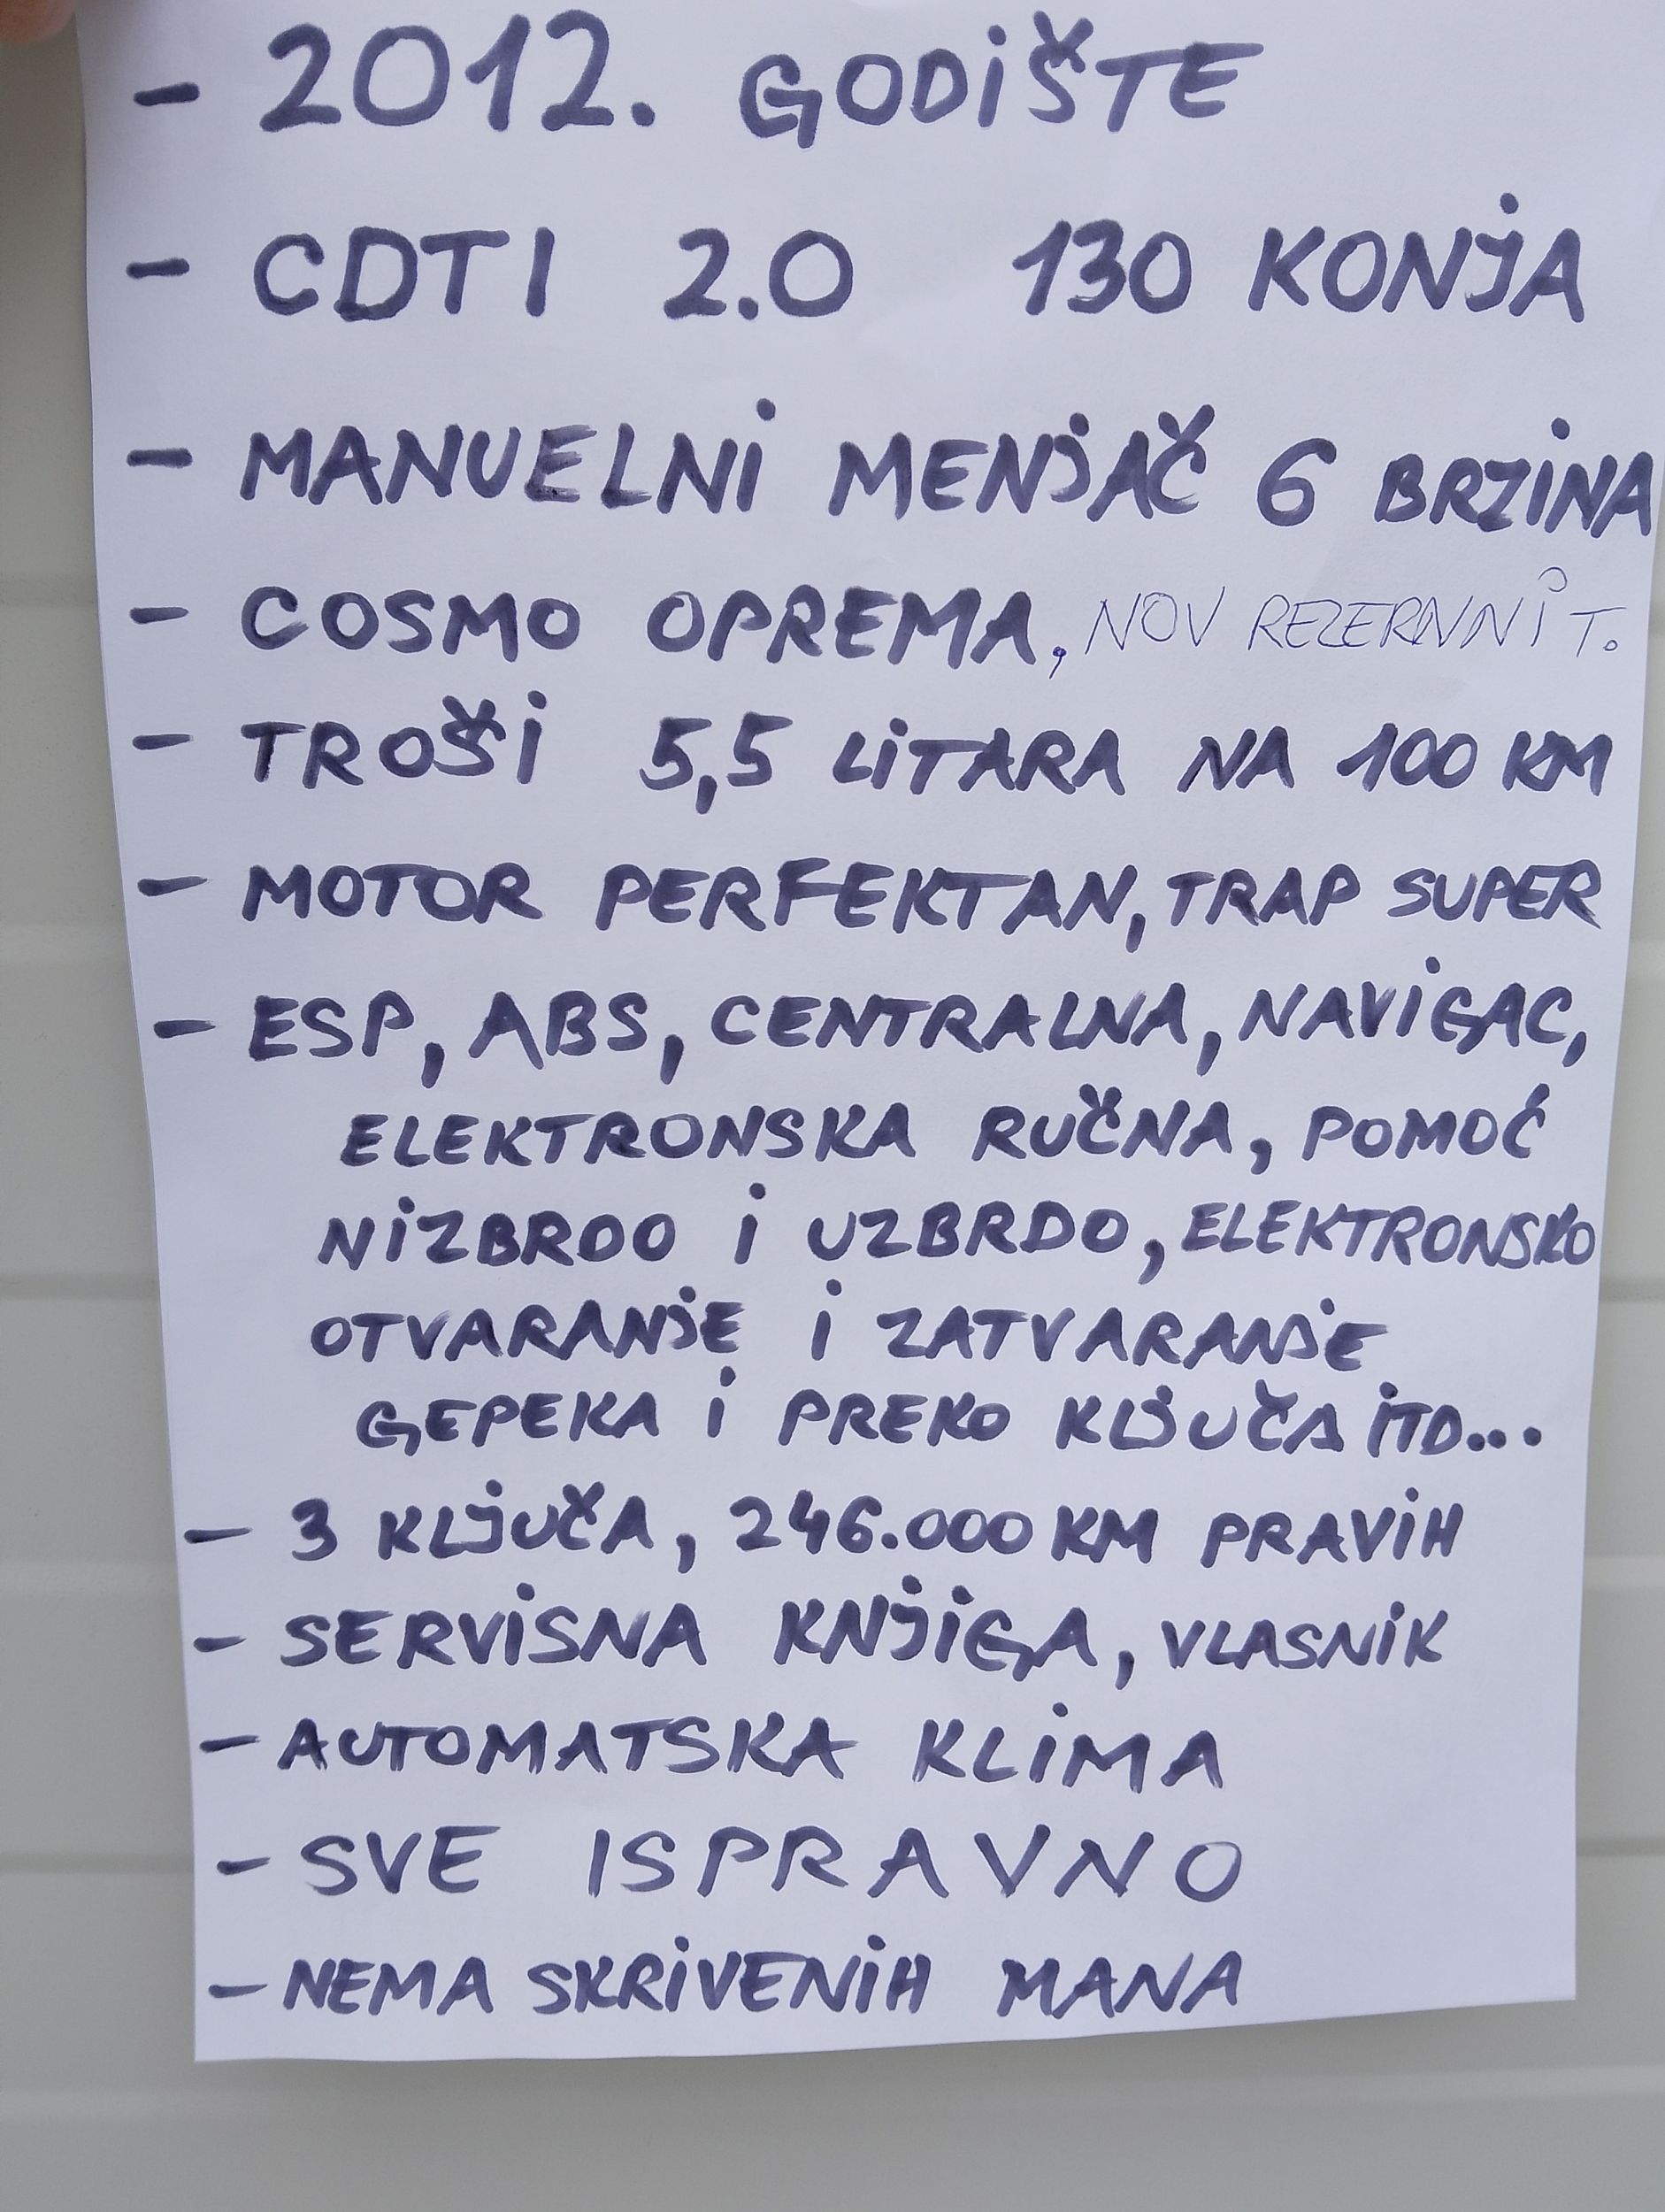 - 2012. GODIŠTE
- CDTI 2.0 130 KONJA
- MANUELNI MENJAČ 6 BRZINA
- COSMO OPREMA, NOV REZERNNI T.
- TROŠI 5,5 LITARA NA 100 KM
- MOTOR PERFEKTAN, TRAP SUPER
- ESP, ABS, CENTRALNA, NAVIGAC,
ELEKTRONSKA RUČNA, POMOĆ
NIZBRDO I UZBRDO, ELEKTRONSKO
OTVARANJE I ZATVARANJE
GEPEKA I PREKO KLJUČA ITD...
- 3 KLJUČA, 246.000 KM PRAVIH
- SERVISNA KNJIGA, VLASNIK
- AUTOMATSKA KLIMA
- SVE ISPRAVNO
- NEMA SKRIVENIH MANA